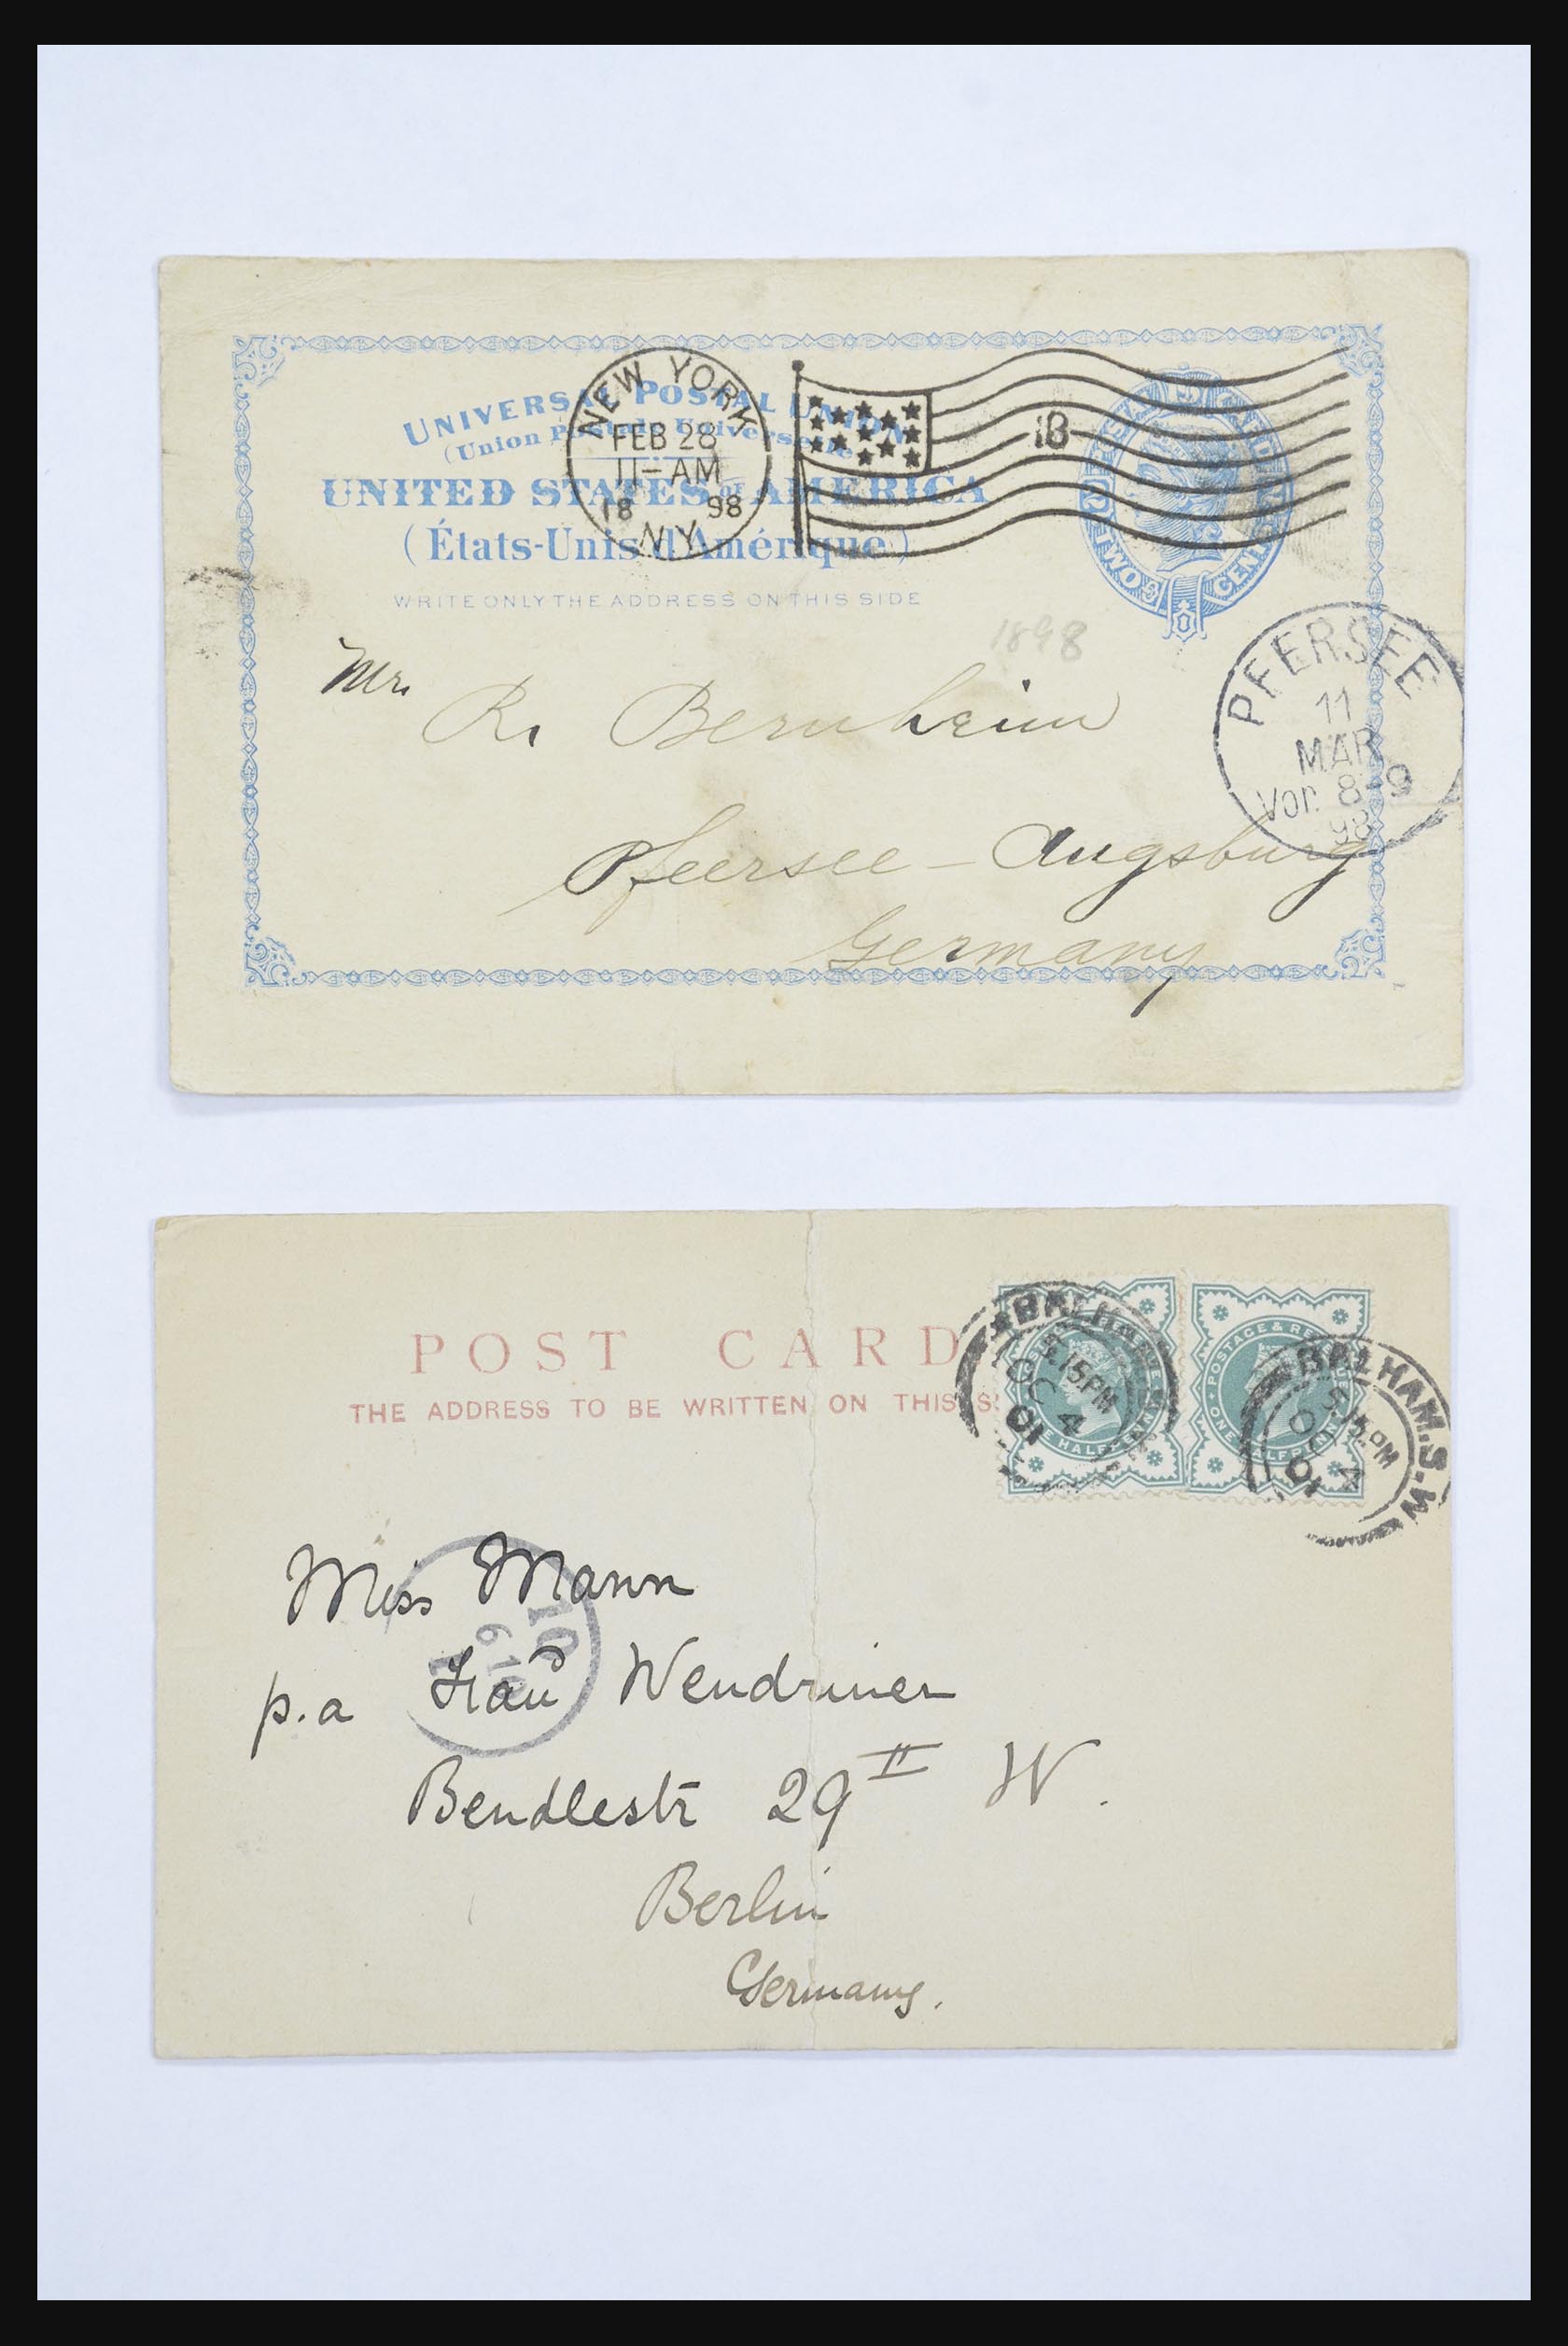 UNIVERSAL POSTAL UNION
(Union Postale Universelle)
UNITED STATES OF AMERICA
(États-Unis d'Amérique)
WRITE ONLY THE ADDRESS ON THIS SIDE
NEW YORK
FEB 28
11-AM
18 98
N.Y.
18
TWO CENTS
1898
PFERSEE
11
MAR
Vor. 8-9
98
Mr. R. Bernheim
Pfeersee - Augsburg
Germany
POST CARD
THE ADDRESS TO BE WRITTEN ON THIS S
BALHA
9.15PM
OC 4
01
POSTAGE & RE
ONE HALFPENN
BALHAM.S.W
9.15PM
OC 4
01
Miss Mann
p.a Frau Wendriner
Bendlestr 29 II W.
Berlin
Germany.